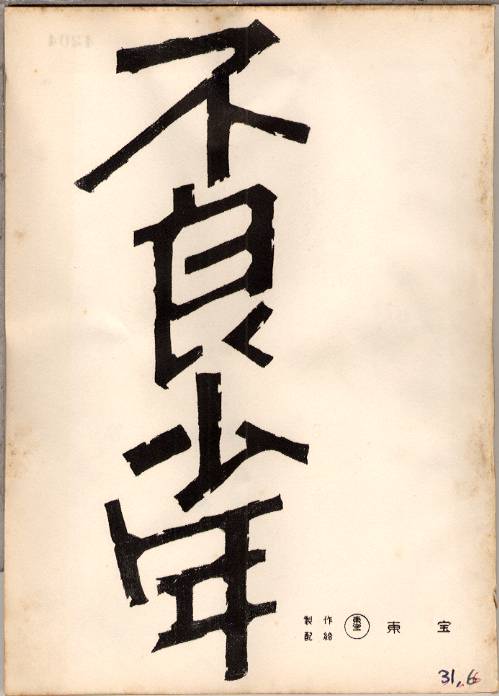 不良少年
製作
配給
東宝
東宝
31.6